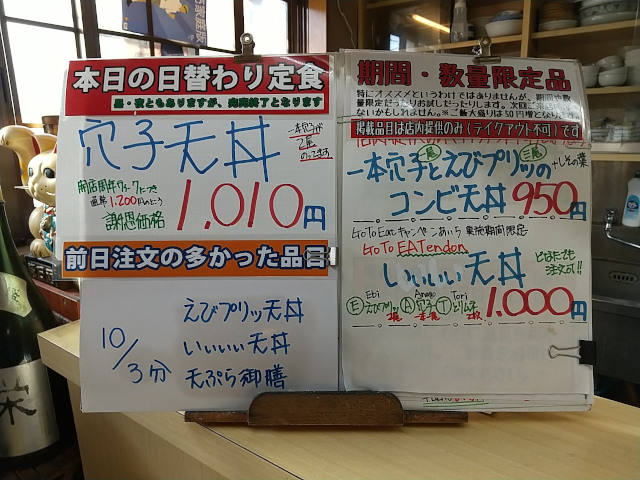 本日の日替わり定食
昼・夜ともありますが、完売終了となります
穴子天丼
一本穴子が
2尾
のってます
開店周年ウィークにつき
通常1,200円のところ
謝恩価格
1,010円
前日注文の多かった品目
10/3分
えびプリッ天丼
いいいい天丼
天ぷら御膳
期間・数量限定品
特にオススメというわけではありませんが、期間や数
量限定だったりお試しだったりします。次回ご
ないかもしれません。※ご飯大盛りは50円増となり
掲載品目は店内提供のみ(テイクアウト不可)です
一本穴子と二尾えびプリッ三尾の
+しその葉
コンビ天丼 950円
GoToEatキャンペーンあいち 実施期間限定
GoTo EATendon
いいいい天丼
どなたでも
注文可!!
Ebi Anago Tori
Ⓔえびプリッ2尾 Ⓐ穴子一本 Ⓣとり天2枚
1,000円